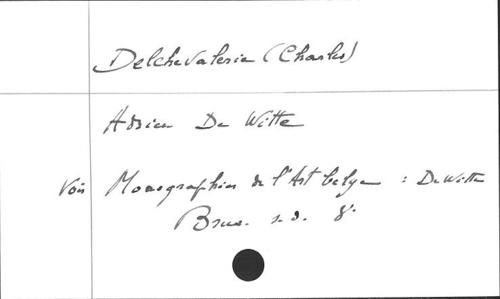 Delchevalerie (Charles)
Adrien De Witte
Voir Monographies de l'Art belge : De Witte
Brux. s.d. 8°